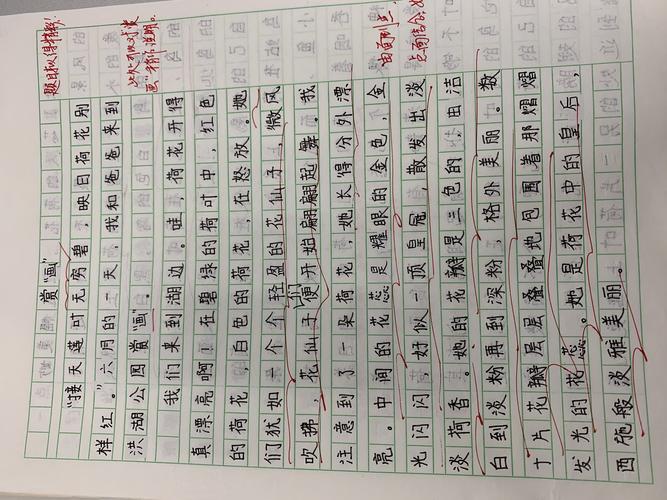 题目拟得精彩！
由面到点
点面结合
赏“画”
“接天莲叶无穷碧，映日荷花别
样红。”六月的一天，我和爸爸来到
洪湖公园赏“画”。
我们来到湖边。哇，荷花开得
真漂亮啊！在碧绿的荷叶中，红色
的荷花，白色的荷花，在怒放。她
们犹如一个个轻盈的花仙子，微风
吹拂，花仙子们便开始翩翩起舞。我
注意到了一朵荷花，她长得分外漂
亮。中间的花蕊是耀眼的金色，金
光闪闪，好似一顶皇冠，散发出淡
淡荷香。她的花瓣是三色的，由洁
白到淡粉再到深粉，格外美丽。数
十片花瓣层层叠叠地包围着那熠熠
发光的花蕊。她是荷花中的皇后，
西施般淡雅美丽。